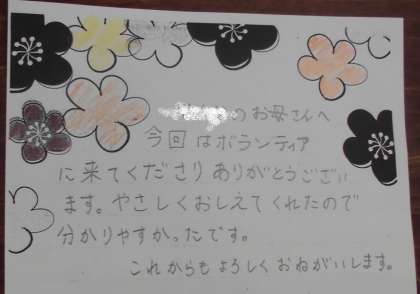 のお母さんへ
今回はボランティア
に来てくださりありがとうござい
ます。やさしくおしえてくれたので
分かりやすかったです。
これからもよろしくおねがいします。